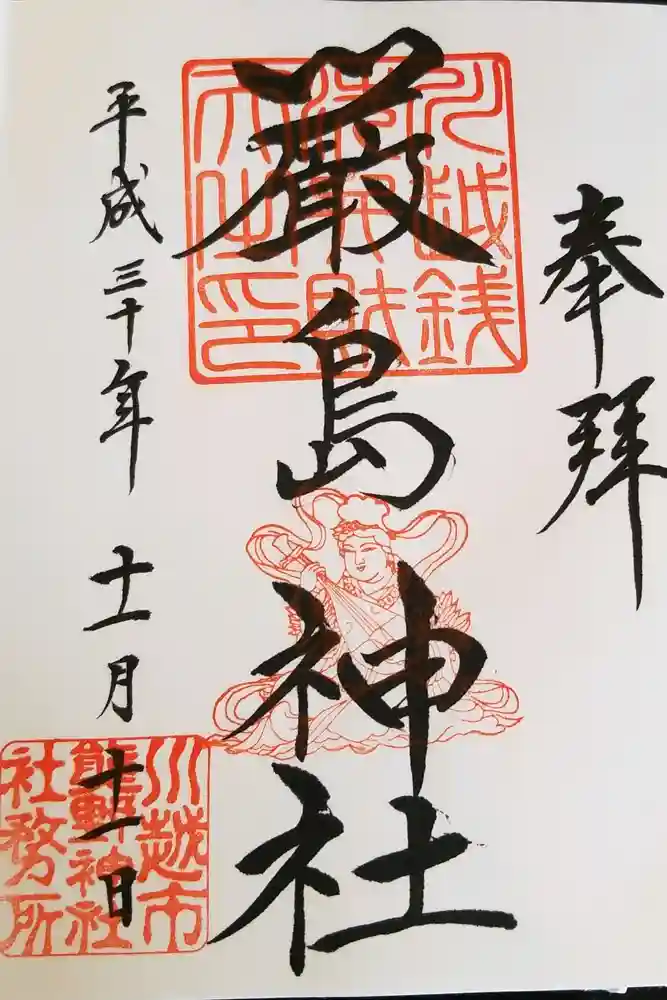 奉拝
川越銭
厳島神社
平成三十年 十一月 十一日
川越市
熊野神社
社務所